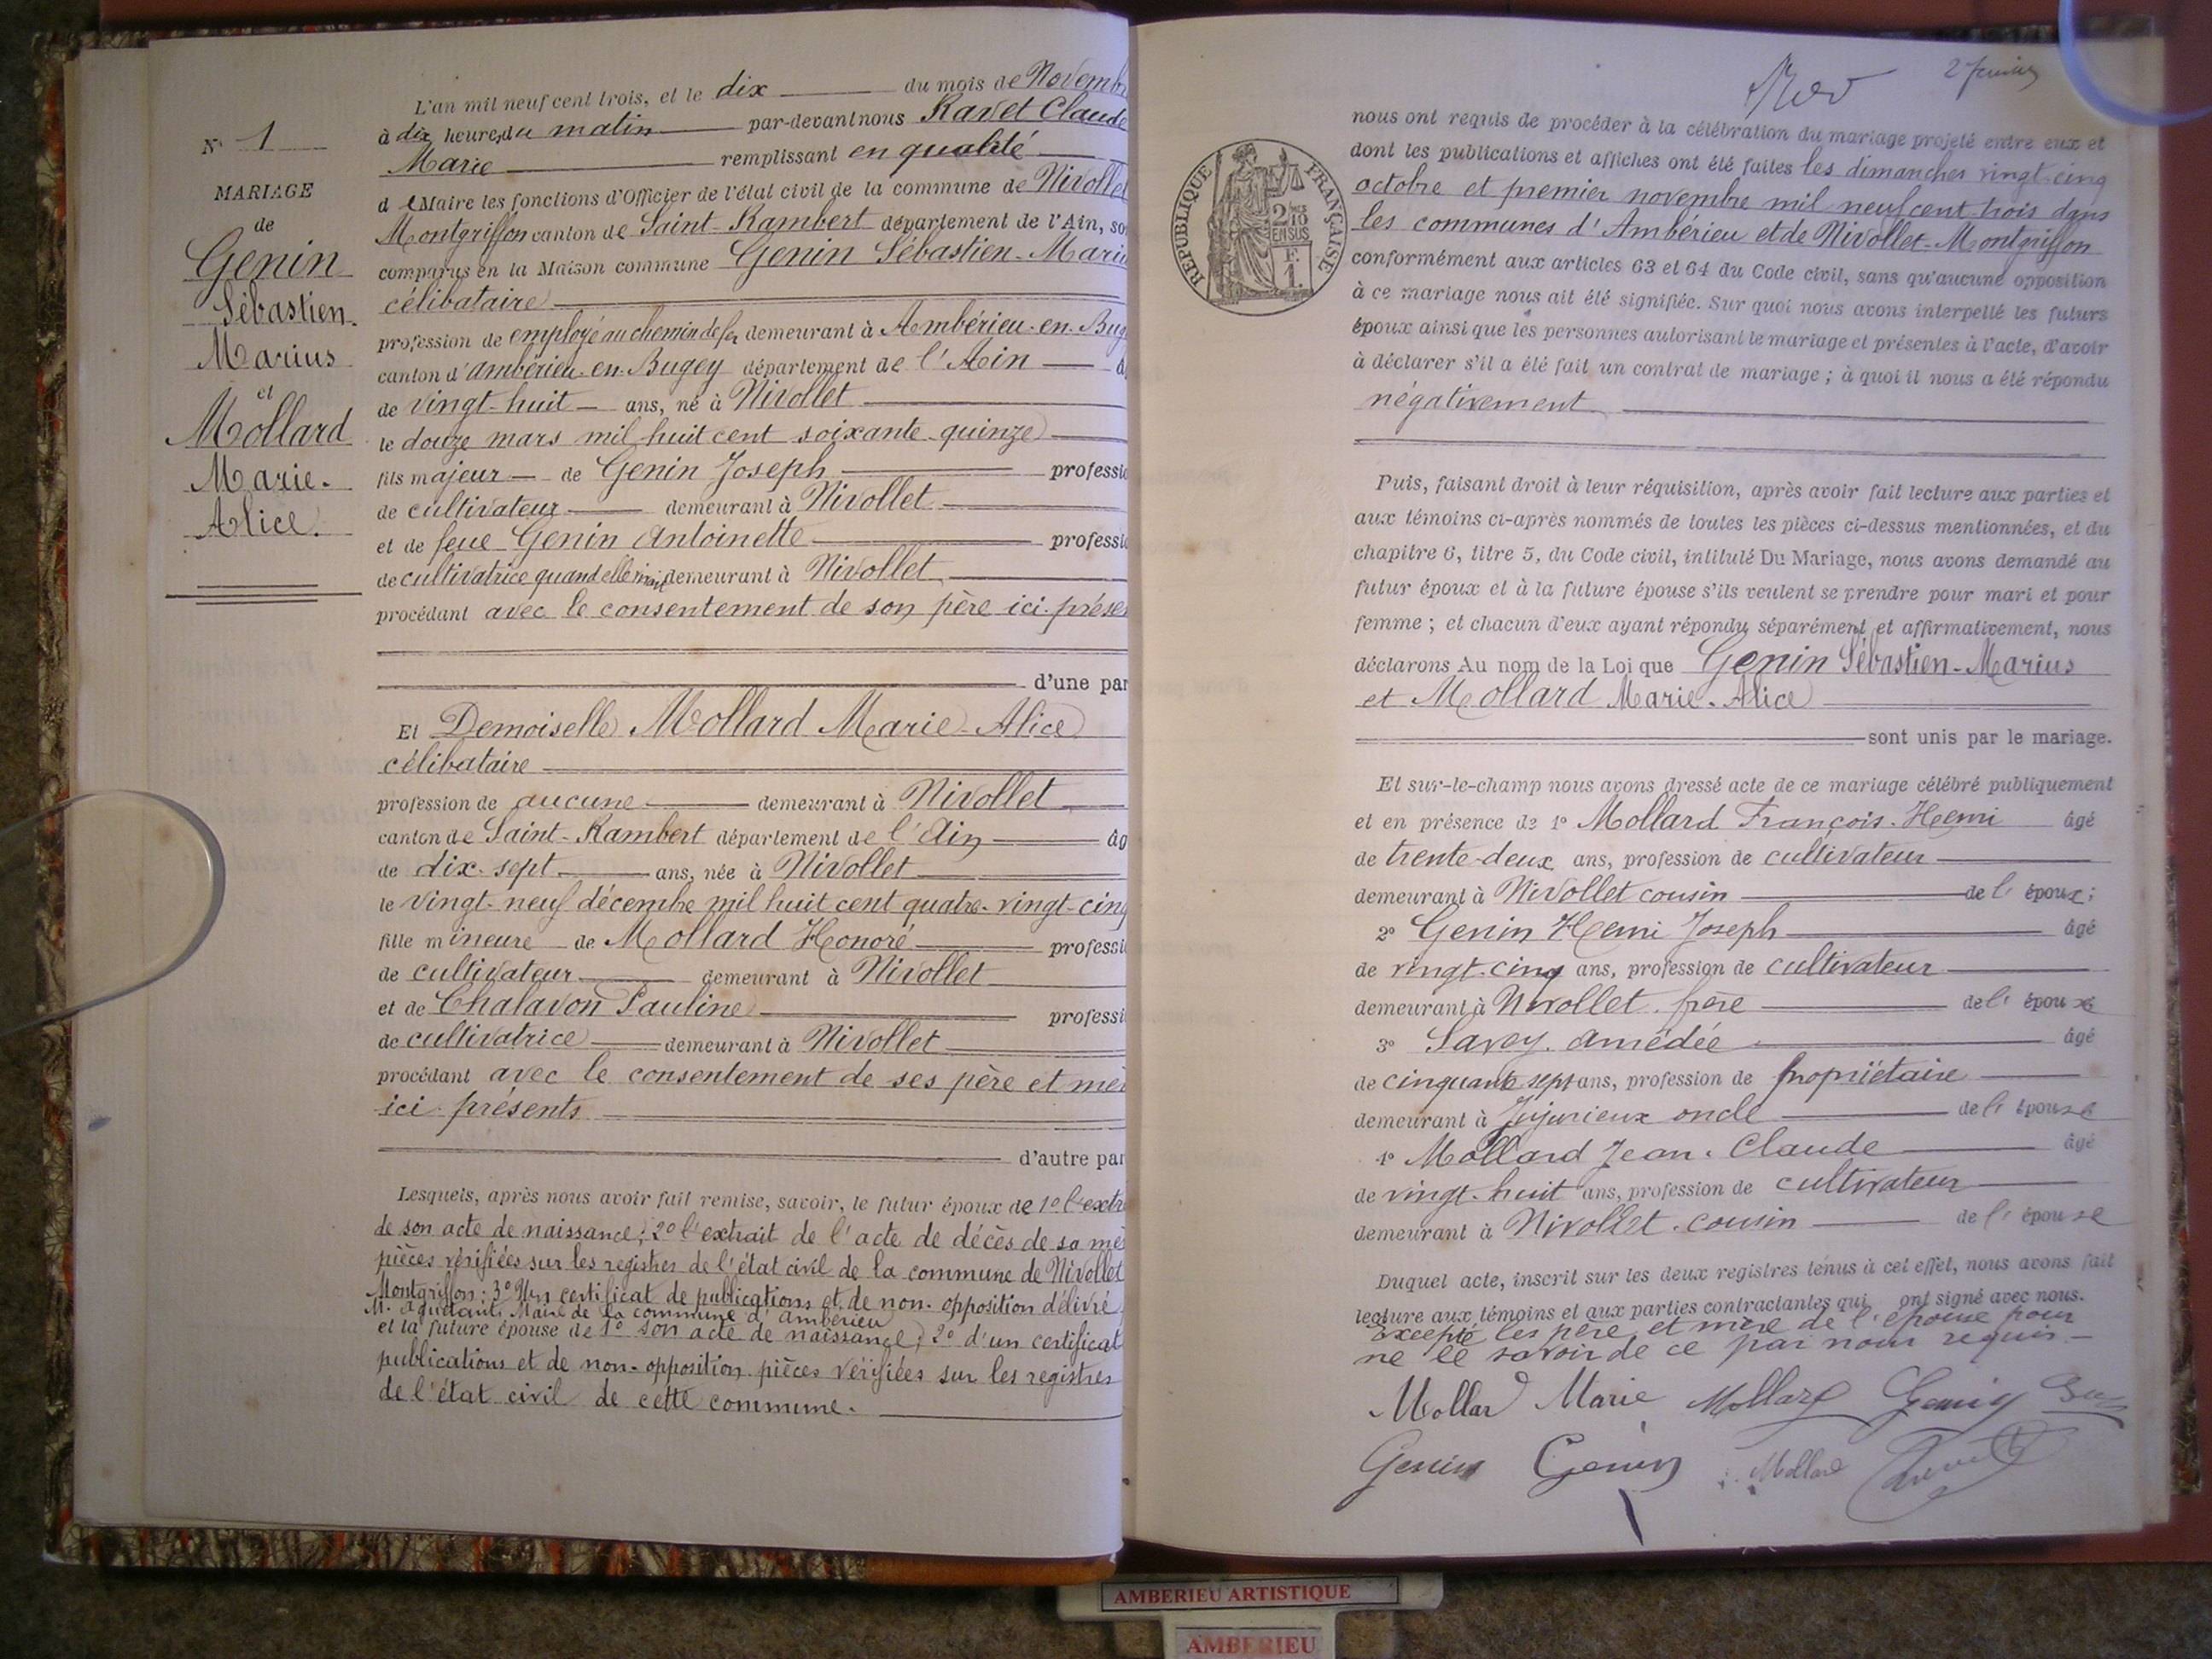 L'an mil neuf cent trois, et le dix du mois de Novemb
à dix heures du matin par-devant nous Ravet Claude
Marie remplissant en qualité
de Maire les fonctions d'Officier de l'état civil de la commune de Nivollet
Montgriffon canton de Saint-Rambert département de l'Ain, so
comparus en la Maison commune Genin Sébastien-Mariu
célibataire
profession de employé au chemin de fer demeurant à Ambérieu-en-Bug
canton d'ambérieu-en-Bugey département de l'Ain â
de vingt-huit ans, né à Nivollet
le douze mars mil huit cent soixante-quinze
fils majeur de Genin Joseph professi
de cultivateur demeurant à Nivollet
et de feue Genin Antoinette professi
de cultivatrice quand elle vivait demeurant à Nivollet
procédant avec le consentement de son père ici-prése
d'une par
N° 1
MARIAGE
de
Genin
Sébastien-
Marius
et
Mollard
Marie-
Alice.
Et Demoiselle Mollard Marie-Alice
célibataire
profession de aucune demeurant à Nivollet
canton de Saint-Rambert département de l'Ain âg
de dix-sept ans, née à Nivollet
le vingt-neuf décembre mil huit cent quatre-vingt-cinq
fille mineure de Mollard Honoré professi
de cultivateur demeurant à Nivollet
et de Chalavon Pauline professi
de cultivatrice demeurant à Nivollet
procédant avec le consentement de ses père et mèr
ici-présents
d'autre par
Lesquels, après nous avoir fait remise, savoir, le futur époux de 1° l'extr
de son acte de naissance; 2° l'extrait de l'acte de décès de sa mè
pièces vérifiées sur les registres de l'état civil de la commune de Nivollet
Montgriffon; 3° Un certificat de publications et de non-opposition délivré
M. Maire de la commune d'Ambérieu
et la future épouse de 1° son acte de naissance; 2° d'un certificat
publications et de non-opposition pièces vérifiées sur les registres
de l'état civil de cette commune.
nous ont requis de procéder à la célébration du mariage projeté entre eux et
dont les publications et affiches ont été faites les dimanches vingt-cinq
octobre et premier novembre mil neuf cent trois dans
les communes d'Ambérieu et de Nivollet-Montgriffon
conformément aux articles 63 et 64 du Code civil, sans qu'aucune opposition
à ce mariage nous ait été signifiée. Sur quoi nous avons interpellé les futurs
époux ainsi que les personnes autorisant le mariage et présentes à l'acte, d'avoir
à déclarer s'il a été fait un contrat de mariage; à quoi il nous a été répondu
négativement
RÉPUBLIQUE FRANÇAISE
2/10
EN SUS
F.
1.
Puis, faisant droit à leur réquisition, après avoir fait lecture aux parties et
aux témoins ci-après nommés de toutes les pièces ci-dessus mentionnées, et du
chapitre 6, titre 5, du Code civil, intitulé Du Mariage, nous avons demandé au
futur époux et à la future épouse s'ils veulent se prendre pour mari et pour
femme; et chacun d'eux ayant répondu séparément et affirmativement, nous
déclarons Au nom de la Loi que Genin Sébastien-Marius
et Mollard Marie-Alice
sont unis par le mariage.
Et sur-le-champ nous avons dressé acte de ce mariage célébré publiquement
et en présence de 1° Mollard François-Henri âgé
de trente-deux ans, profession de cultivateur
demeurant à Nivollet cousin de l'époux;
2° Genin Henri Joseph âgé
de vingt-cinq ans, profession de cultivateur
demeurant à Nivollet frère de l'époux
3° Savey Amédée âgé
de cinquante sept ans, profession de propriétaire
demeurant à Jujurieux oncle de l'épouse
4° Mollard Jean-Claude âgé
de vingt-huit ans, profession de cultivateur
demeurant à Nivollet-cousin de l'épouse
Duquel acte, inscrit sur les deux registres tenus à cet effet, nous avons fait
lecture aux témoins et aux parties contractantes qui ont signé avec nous.
Excepté les père et mère de l'épouse pour
ne le savoir de ce par nous requis-
Mollard Marie Mollard Genin
Genin Genin Mollard
AMBERIEU ARTISTIQUE
AMBERIEU